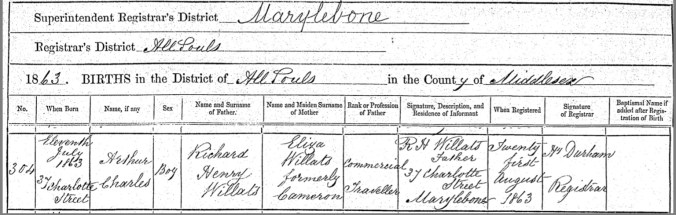 Superintendent Registrar's District Marylebone
Registrar's District All Souls
1863. BIRTHS in the District of All Souls in the County of Middlesex
No. When Born Name, if any Sex Name and Surname of Father. Name and Maiden Surname of Mother Rank or Profession of Father Signature, Description, and Residence of Informant When Registered Signature of Registrar Baptismal Name if added after Registration of Birth
304
Eleventh
July
1863
37 Charlotte
Street
Arthur
Charles
Boy
Richard
Henry
Willats
Eliza
Willats
formerly
Cameron
Commercial
Traveller
R H Willats
Father
37 Charlotte
Street
Marylebone
Twenty
first
August
1863
Wm Durham
Registrar